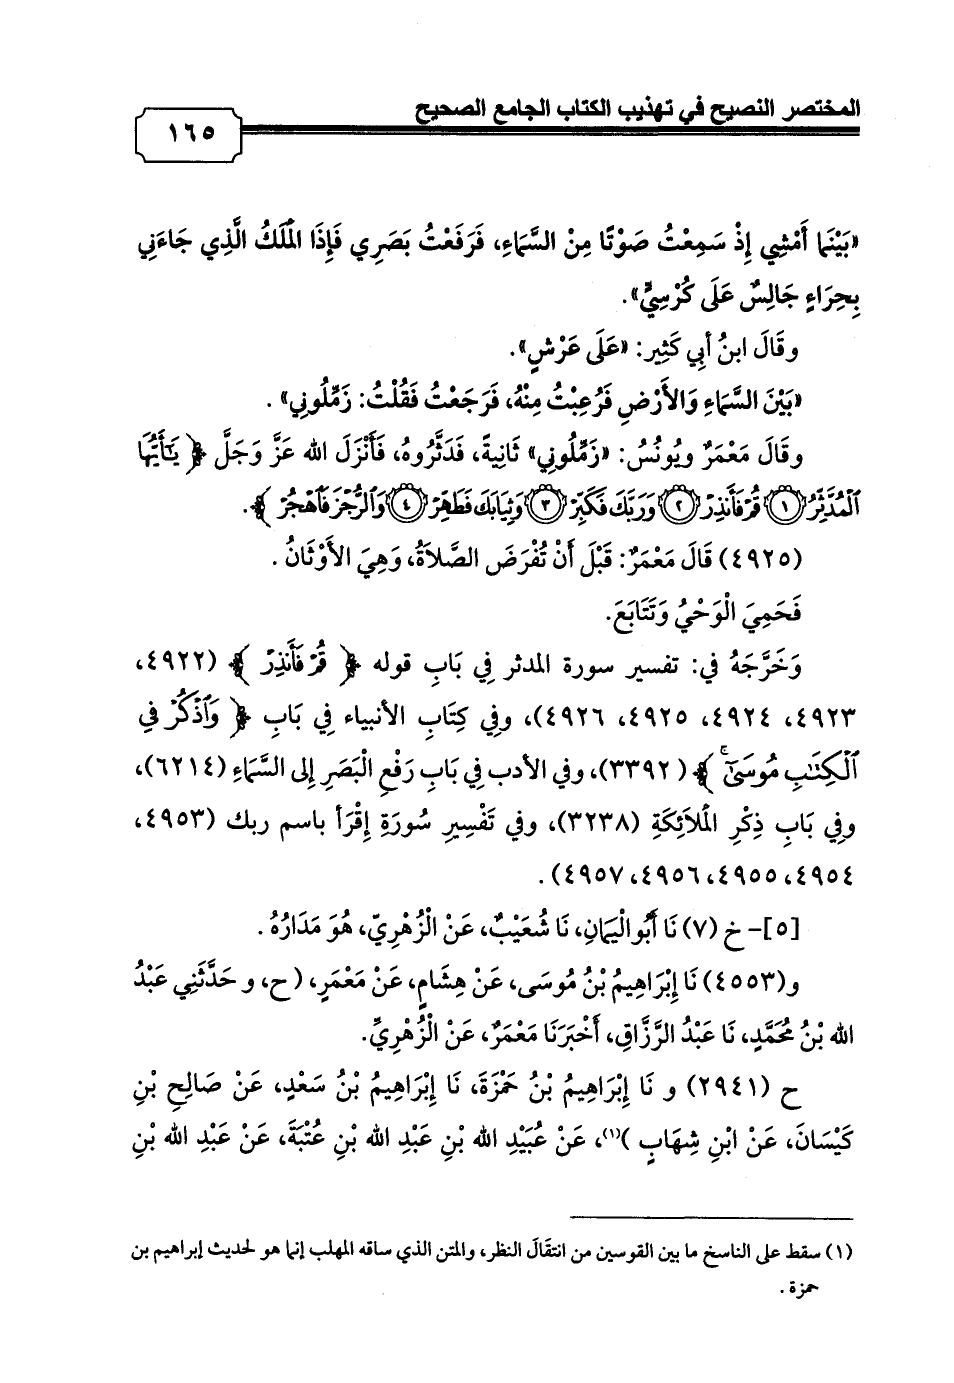 المختصر النصيح في تهذيب الكتاب الجامع الصحيح
١٦٥
«بَيْنَما أَمْشِي إِذْ سَمِعْتُ صَوْتًا مِنْ السَّمَاءِ، فَرَفَعْتُ بَصَرِي فَإِذَا الْمَلَكُ الَّذِي جَاءَنِي
بِحِرَاءٍ جَالِسٌ عَلَى كُرْسِيٍّ».
وقَالَ ابنُ أبِي كَثِير: «عَلَى عَرْشٍ».
«بَيْنَ السَّمَاءِ وَالأَرْضِ فَرُعِبْتُ مِنْهُ، فَرَجَعْتُ فَقُلْتُ: زَمِّلُونِي» .
وقَالَ مَعْمَرٌ ويُونُسُ: «زَمِّلُونِي» ثَانِيةً، فَدَثَّرُوهُ، فَأَنْزَلَ الله عَزَّ وَجَلَّ ﴿ يَٰٓأَيُّهَا
ٱلْمُدَّثِّرُ ١ قُمْ فَأَنذِرْ ٢ وَرَبَّكَ فَكَبِّرْ ٣ وَثِيَابَكَ فَطَهِّرْ ٤ وَٱلرُّجْزَ فَٱهْجُرْ ﴾.
(٤٩٢٥) قَالَ مَعْمَرٌ: قَبْلَ أَنْ تُفْرَضَ الصَّلاَةُ، وَهِيَ الأَوْثَانُ .
فَحَمِيَ الْوَحْيُ وَتَتَابَعَ.
وَخَرَّجَهُ في: تفسير سورة المدثر فِي بَابِ قوله ﴿ قُمْ فَأَنذِرْ ﴾ (٤٩٢٢،
٤٩٢٣، ٤٩٢٤، ٤٩٢٥، ٤٩٢٦)، وفِي كِتَابِ الأنبياء فِي بَابِ ﴿ وَٱذْكُرْ فِي
ٱلْكِتَٰبِ مُوسَىٰٓ ﴾ (٣٣٩٢)، وفي الأدب فِي بَابِ رَفْعِ الْبَصَرِ إلى السَّمَاءِ (٦٢١٤)،
وفِي بَابِ ذِكْرِ الْمَلاَئِكَةِ (٣٢٣٨)، وفي تَفْسِيرِ سُورَةِ إِقْرَأ باسم ربك (٤٩٥٣،
٤٩٥٤، ٤٩٥٥، ٤٩٥٦، ٤٩٥٧) .
[٥]- خ (٧) نَا أَبُو الْيَمَانِ، نَا شُعَيْبٌ، عَنْ الْزُهْرِيّ، هُوَ مَدَارُهُ .
و(٤٥٥٣) نَا إِبْرَاهِيمُ بْنُ مُوسَى، عَنْ هِشَامٍ، عَنْ مَعْمَرٍ، (ح، و حَدَّثَنِي عَبْدُ
الله بْنُ مُحَمَّدٍ، نَا عَبْدُ الرَّزَّاقِ، أَخْبَرَنَا مَعْمَرٌ، عَنْ الْزُهْرِيِّ.
ح (٢٩٤١) و نَا إِبْرَاهِيمُ بْنُ حَمْزَةَ، نَا إِبْرَاهِيمُ بْنُ سَعْدٍ، عَنْ صَالِحِ بْنِ
كَيْسَانَ، عَنْ ابْنِ شِهَابٍ )(١)، عَنْ عُبَيْدِ الله بْنِ عَبْدِ الله بْنِ عُتْبَةَ، عَنْ عَبْدِ الله بْنِ
(١) سقط على الناسخ ما بين القوسين من انتقَالَ النظر، والمتن الذي ساقه المهلب إنما هو لحديث إبراهيم بن
حمزة .